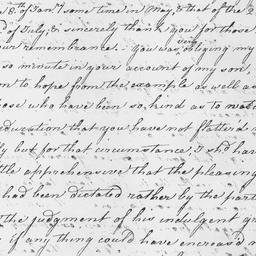 s 8th of Jany some time in May, & that of the 2
d of July, & sincerely thank you for those
our remembrance. you was very obliging my
so minute in your account of my son,
n to hope from the example as well as
ose who have been so kind as to
education that you have not flatter'd
ly but for that circumstance, I shd hav
ttle apprehensive that the pleasing
had been dictated rather by the part
the judgment of his indulgent gr
if any thing could have increas'd